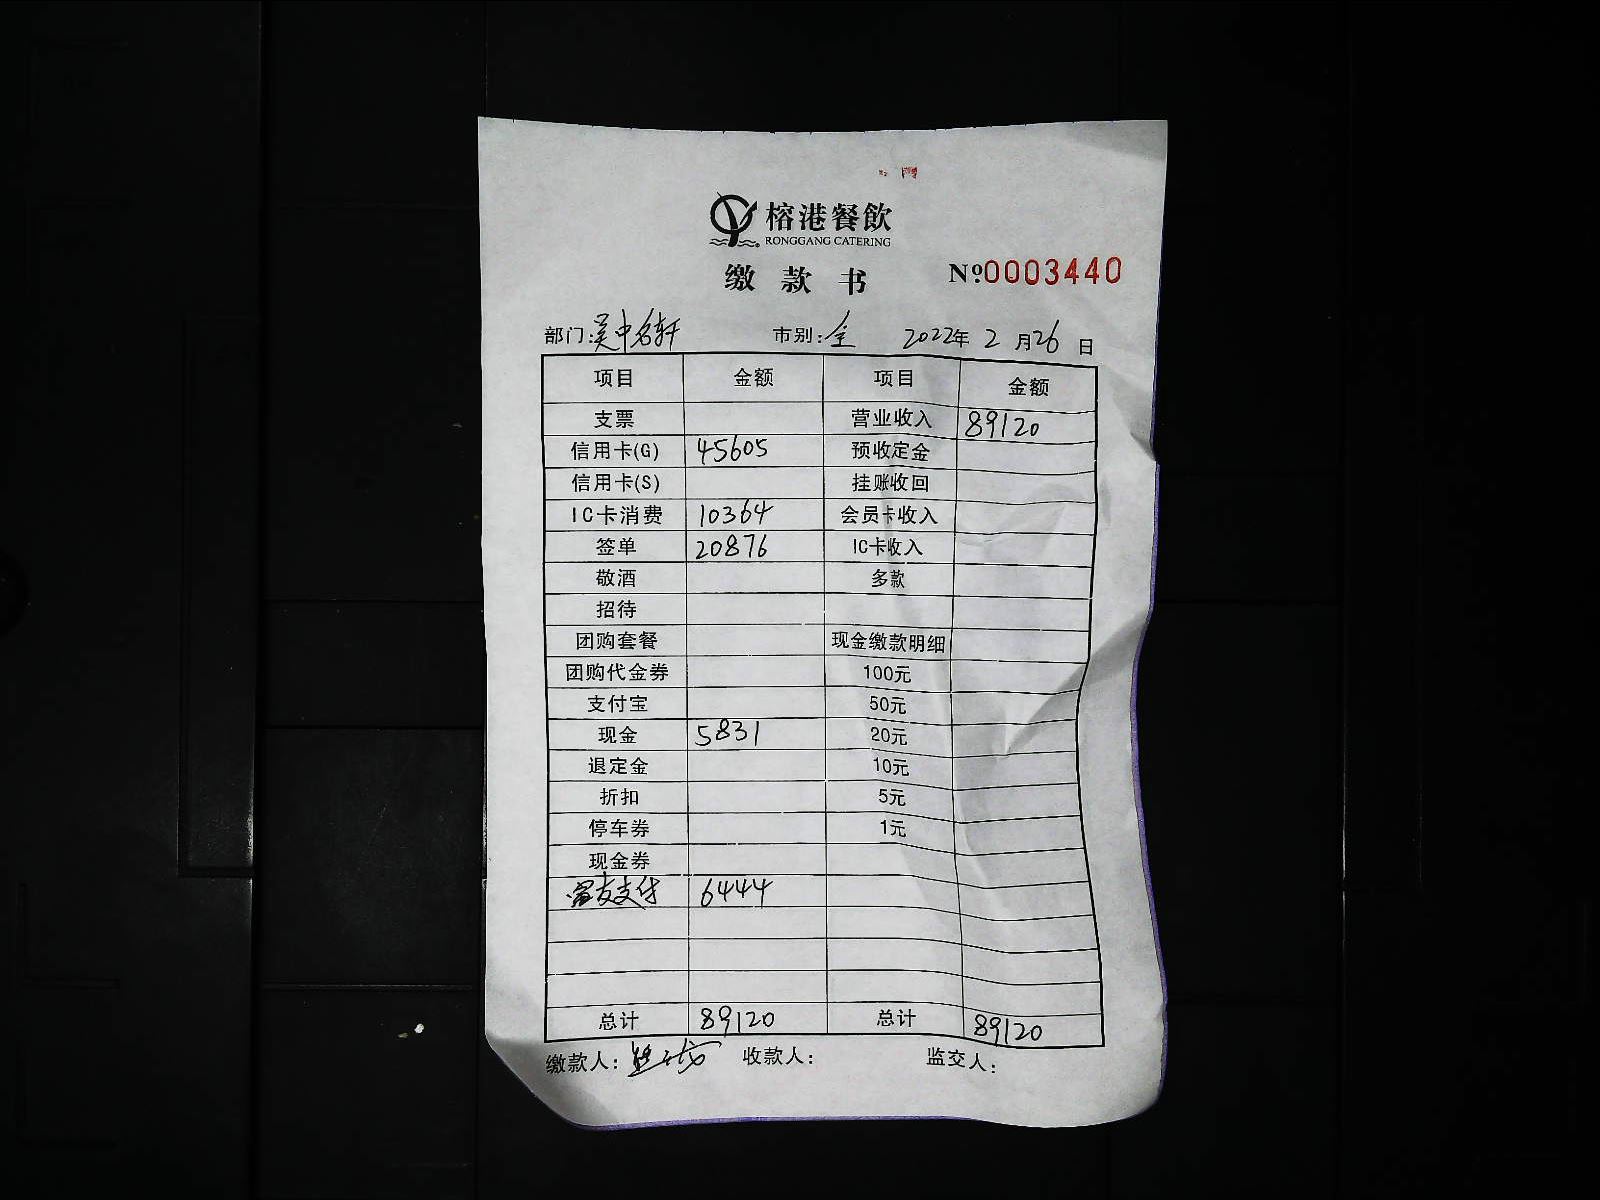 榕港餐飲
RONGGANG CATERING
缴款书 №0003440
部门:吴中名轩 市别:全 2022年2月26日
项目 金额 项目 金额
支票 营业收入 89120
信用卡(G) 45605 预收定金
信用卡(S) 挂账收回
IC卡消费 10364 会员卡收入
签单 20876 IC卡收入
敬酒 多款
招待
团购套餐 现金缴款明细
团购代金券 100元
支付宝 50元
现金 5831 20元
退定金 10元
折扣 5元
停车券 1元
现金券
富友支付 6444
总计 89120 总计 89120
缴款人: 收款人: 监交人: